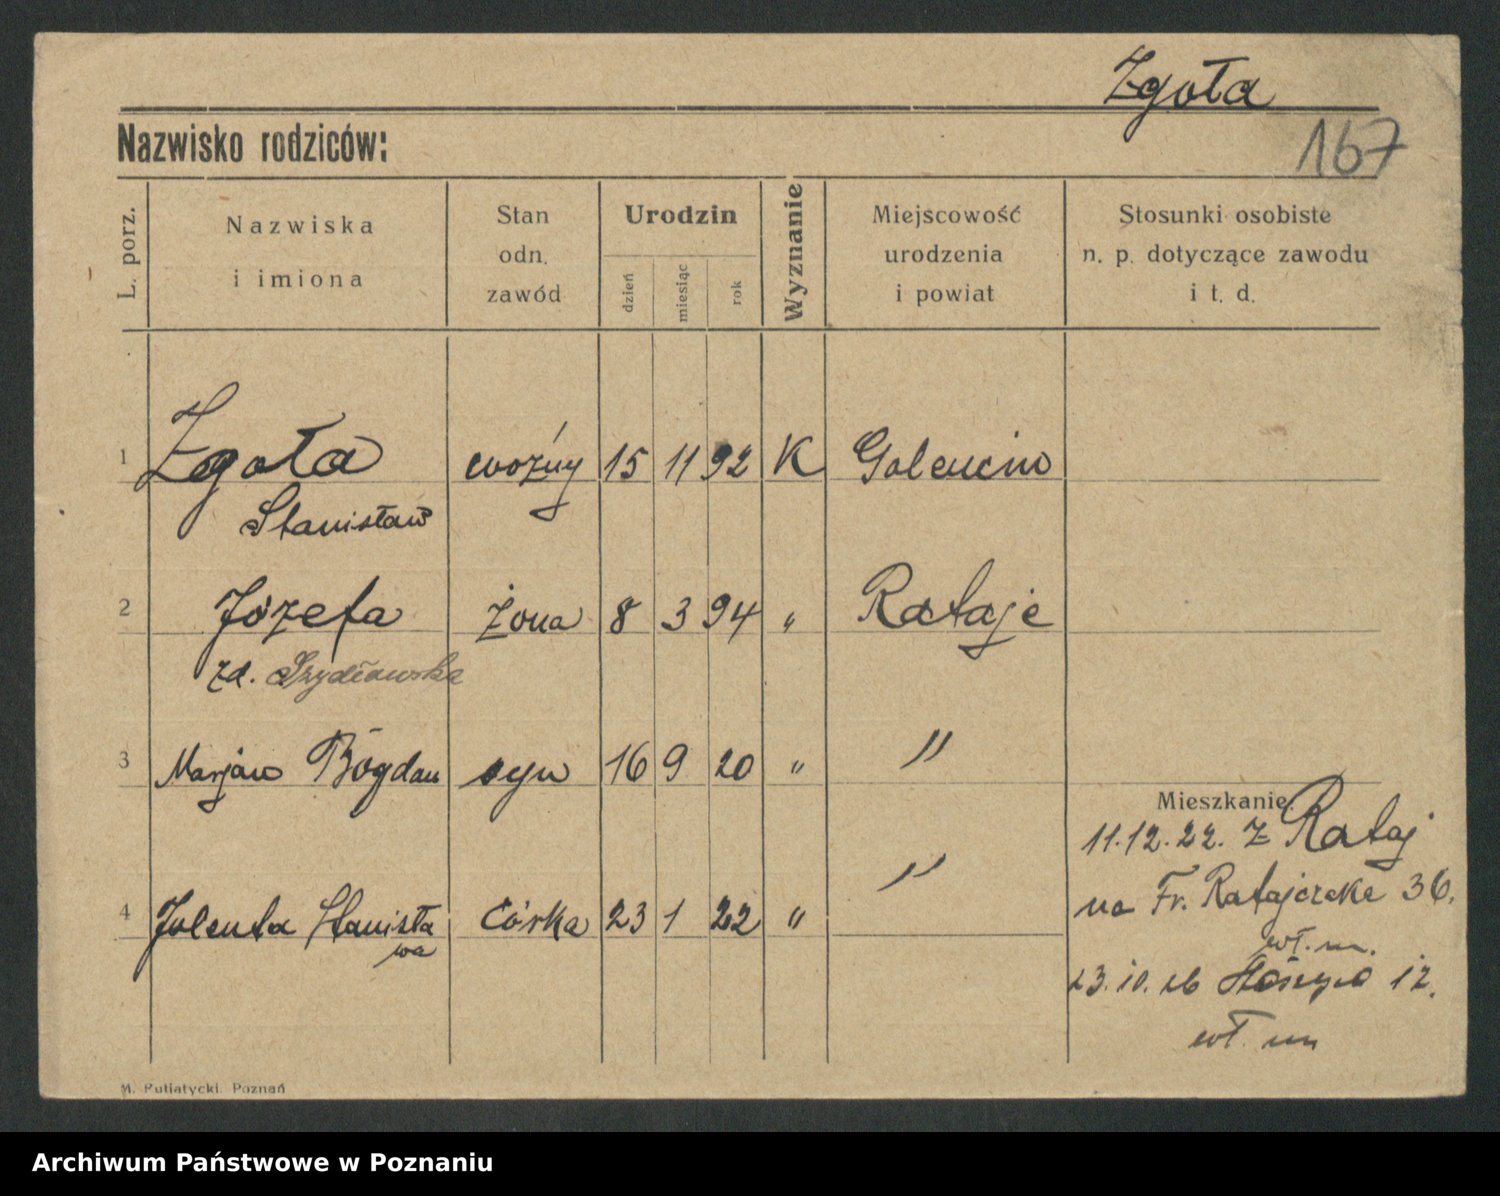 Zgoła
Nazwisko rodziców:
167
L. porz.
Nazwiska
i imiona
Stan
odn.
zawód
Urodzin
dzień
miesiąc
rok
Wyznanie
Miejscowość
urodzenia
i powiat
Stosunki osobiste
n. p. dotyczące zawodu
i t. d.
1 Zgoła woźny 15 11 92 K Golencin
Stanisław
2 Józefa żona 8 3 94 " Rataje
zd. Szydłowska
3 Marjan Bogdan syn 16 9 20 " "
Mieszkanie:
11.12.22. z Rataj
4 Jolenta Stanisła córka 23 1 22 " "
wa
na Fr. Ratajczaka 36.
wł. m.
23.10.26 12.
wł. m
M. Putiatycki, Poznań
Archiwum Państwowe w Poznaniu